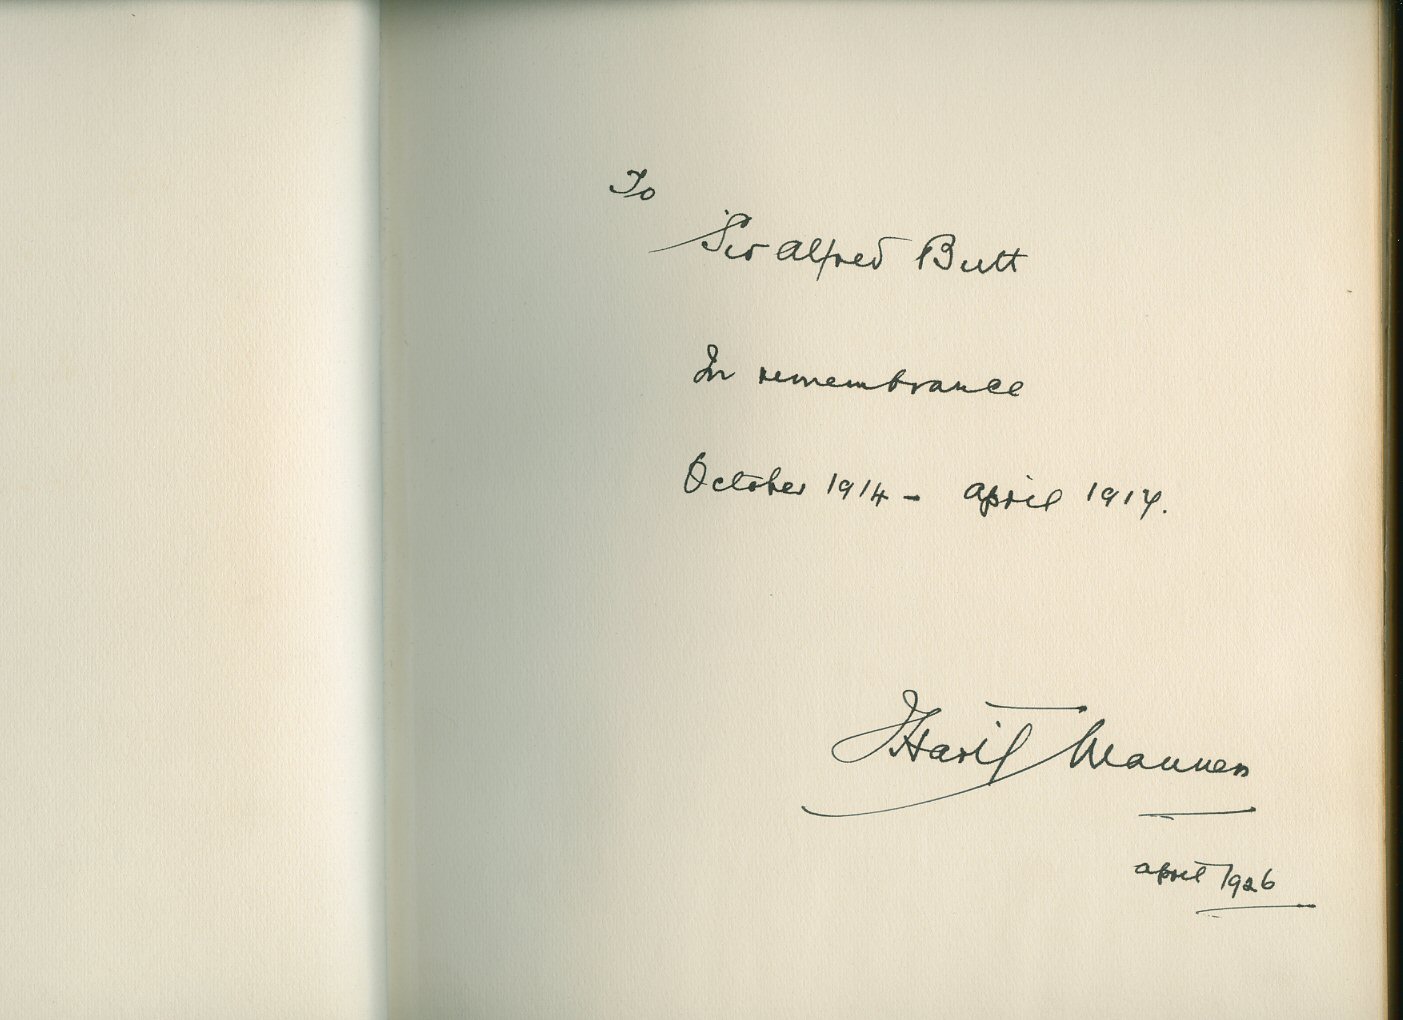 To
Sir Alfred Butt
In remembrance
October 1914 - April 1917.
J Hartley Manners
April 1926